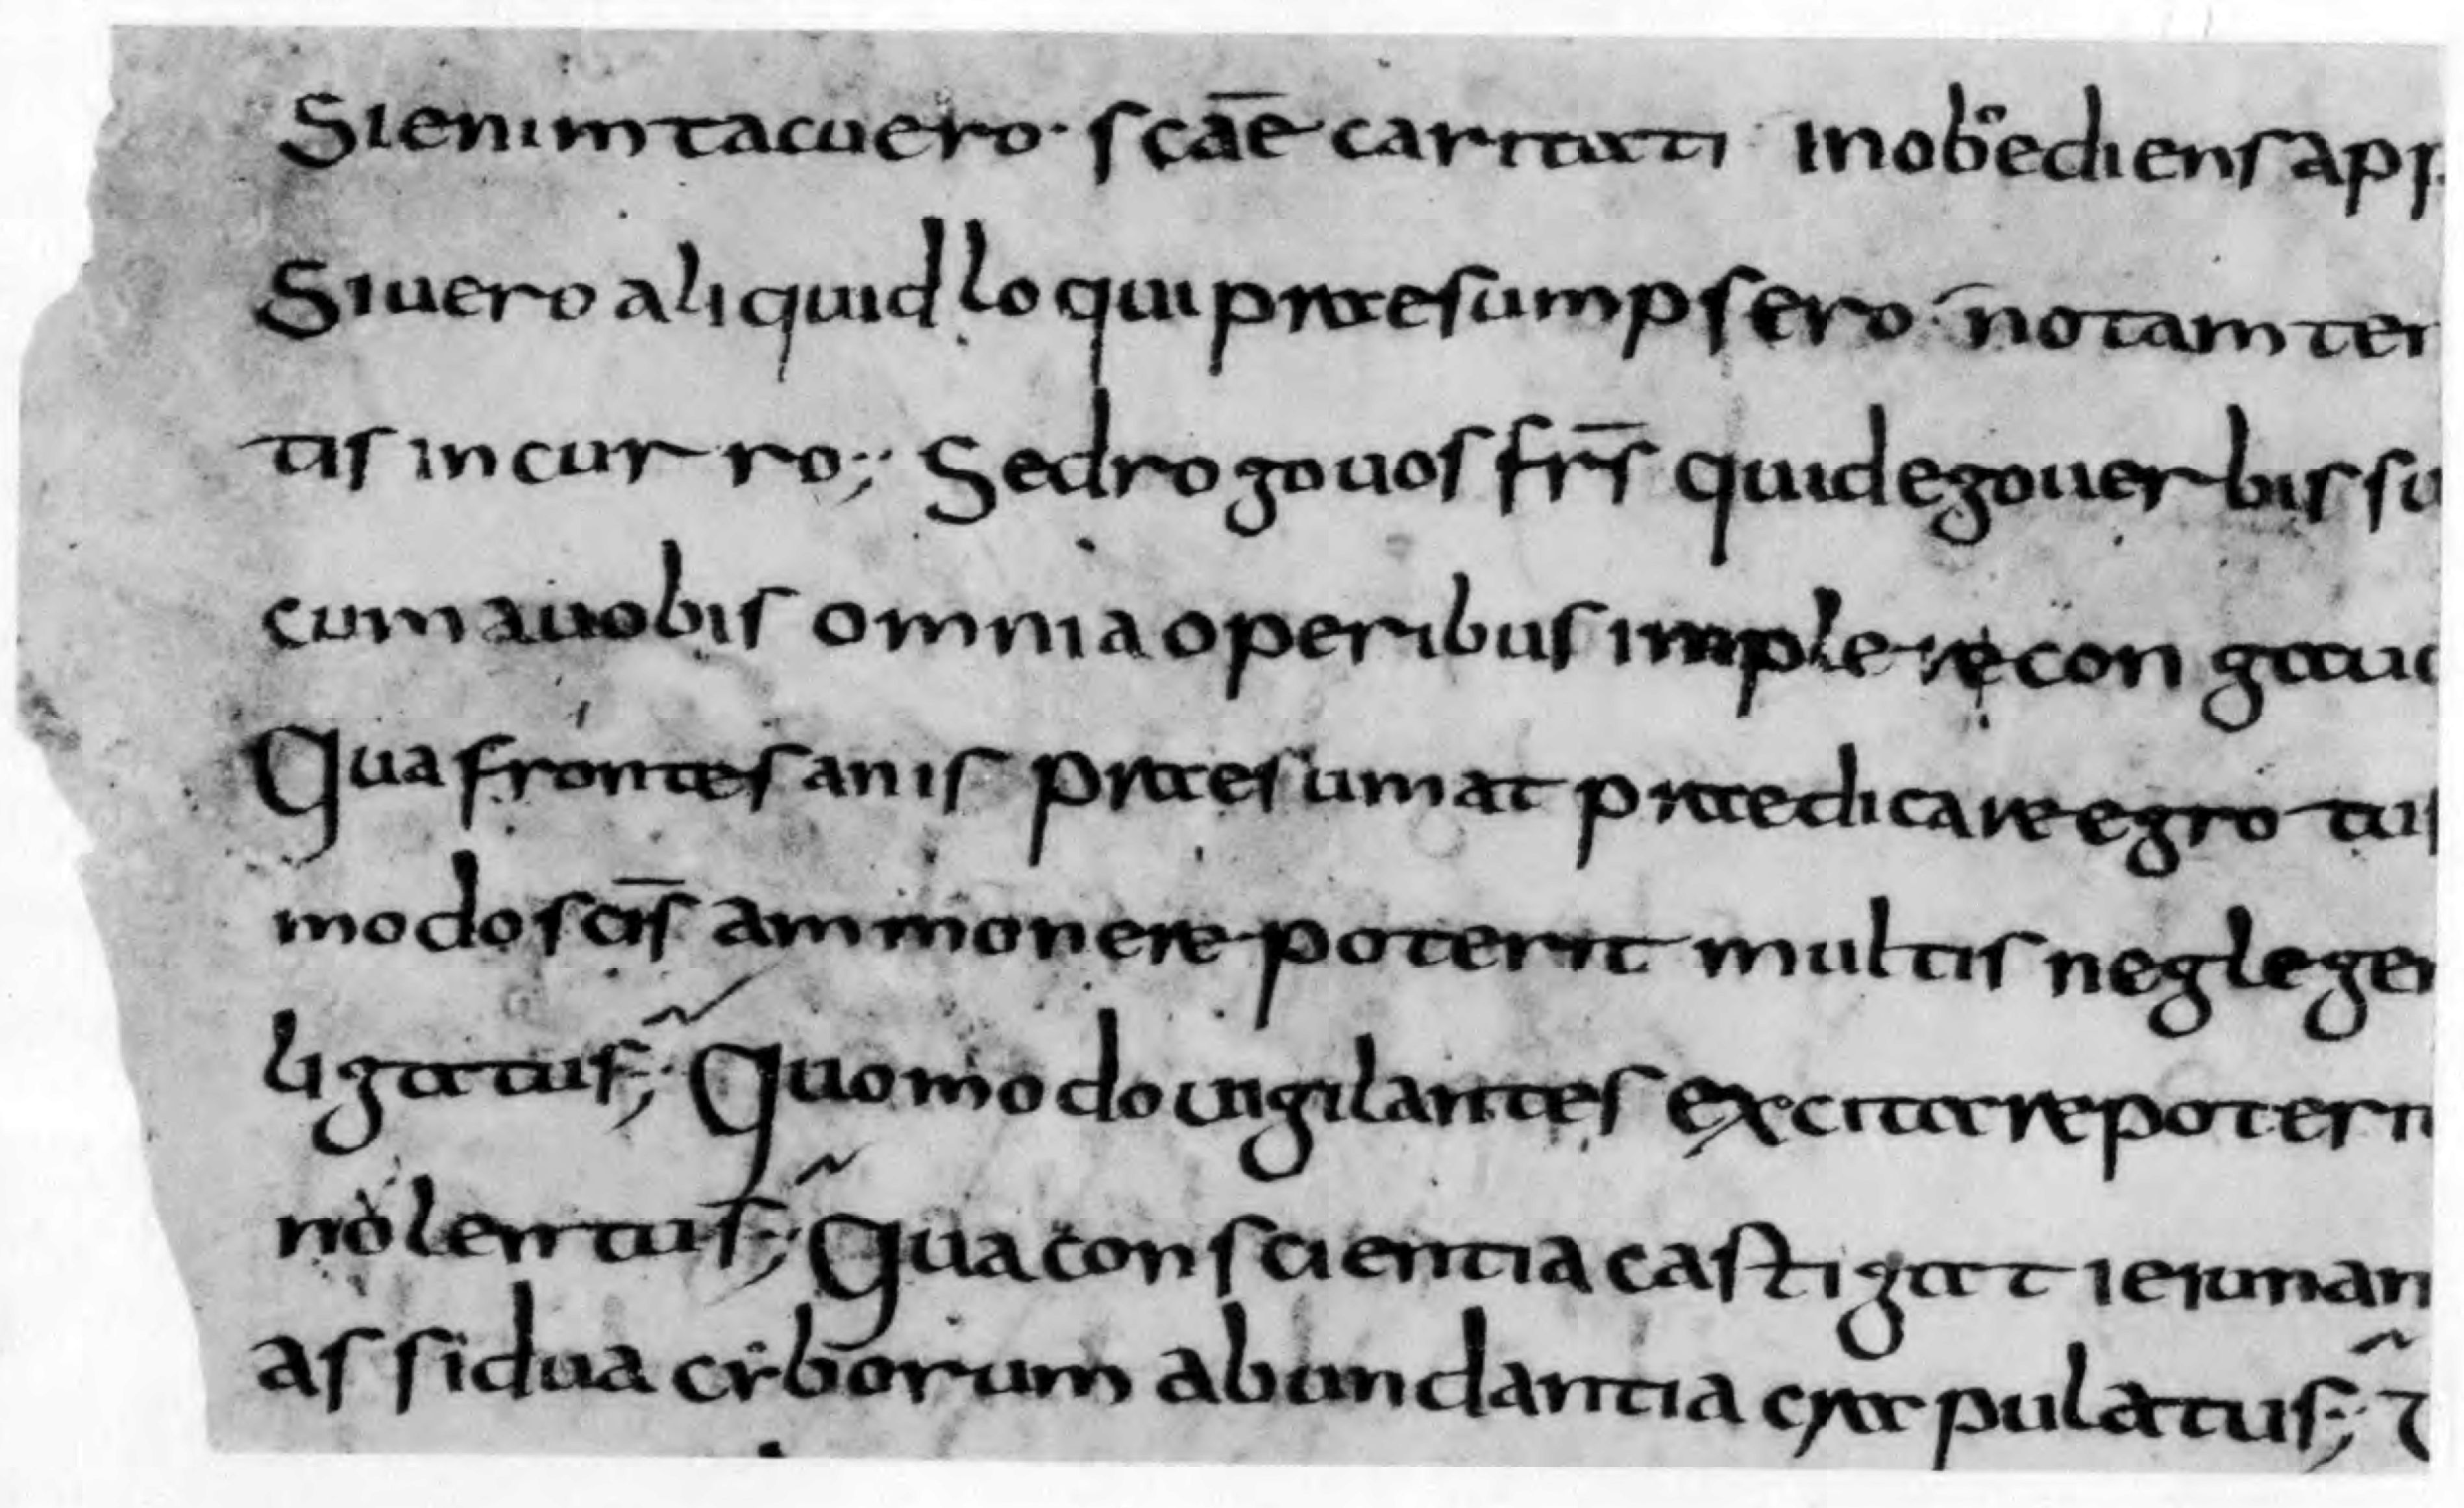 Si enim tacuero · scāe caritati inobediens app
Si uero aliquid loqui praesumpsero · notam te
tis incurro; Sed rogo uos frīs quid ego uerbis su
cum a uobis omnia operibus implere congau
Qua fronte sanis praesumat praedicare egrotus
modo scīs ammonere poterit multis neglege
ligatus; Quomodo uigilantes excitare poteri
nolentus; Qua conscientia castigat ieiunan
assidua ciborum abundantia crapulatus; 7